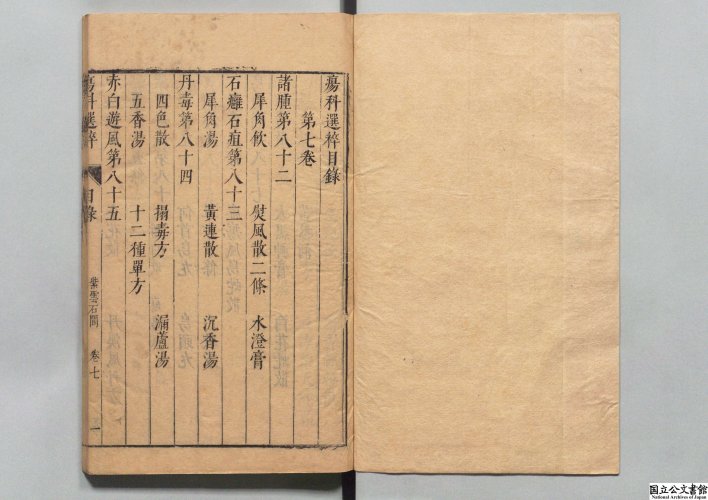 瘍科選粹目錄
第七卷
諸腫第八十二
犀角飲 熨風散二條 水澄膏
石癰石疽第八十三
犀角湯 黃連散 沉香湯
丹毒第八十四
四色散 搨毒方 漏蘆湯
五香湯 十二種單方
赤白遊風第八十五
瘍科選粹 目錄 卷七 一
国立公文書館
National Archives of Japan